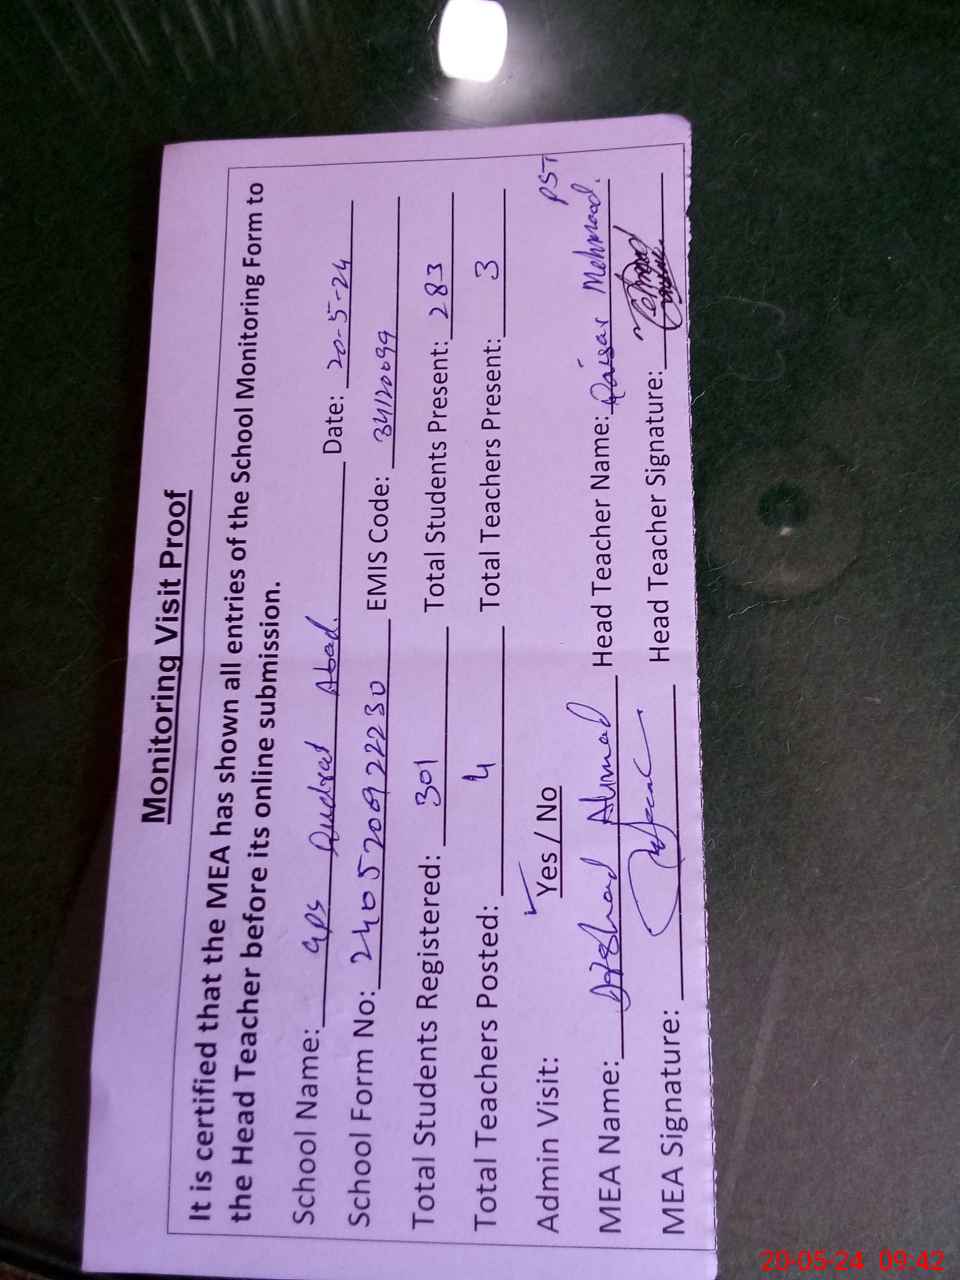 Monitoring Visit Proof
It is certified that the MEA has shown all entries of the School Monitoring Form to
the Head Teacher before its online submission.
School Name: GPS Qudrat Abad. Date: 20-5-24
School Form No: 24052069 22230 EMIS Code: 34120099
Total Students Registered: 301 Total Students Present: 283
Total Teachers Posted: 4 Total Teachers Present: 3
Admin Visit: Yes / No PST
MEA Name: Arshad Ahmad Head Teacher Name: Qaisar Mehmood.
MEA Signature: Head Teacher Signature:
20-05-24 09:42